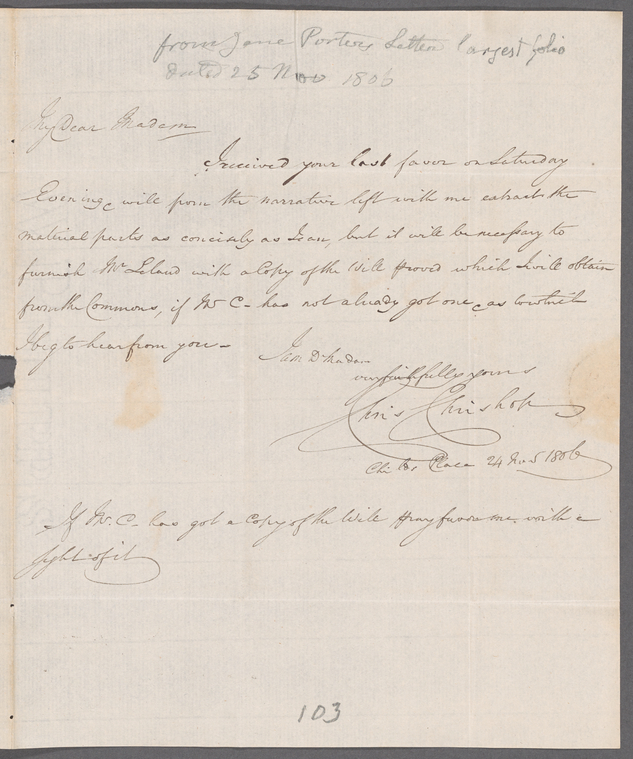 from Jane Porters Letter largest folio
dated 25 Nov 1806
My Dear Madam
I received your last favor on Saturday
Evening & will from the narrative left with me extract the
material parts as concisely as I can, but it will be necessary to
furnish Mr Leland with a Copy of the Will proved which I will obtain
from the Commons, if Mr C- has not already got one & as to which
I beg to hear from you-
I am Dr Madam
very faithfully yours
Chris
Place 24 Nov 1806
If Mr C- has got a Copy of the Will pray favor me with a
sight of it
103